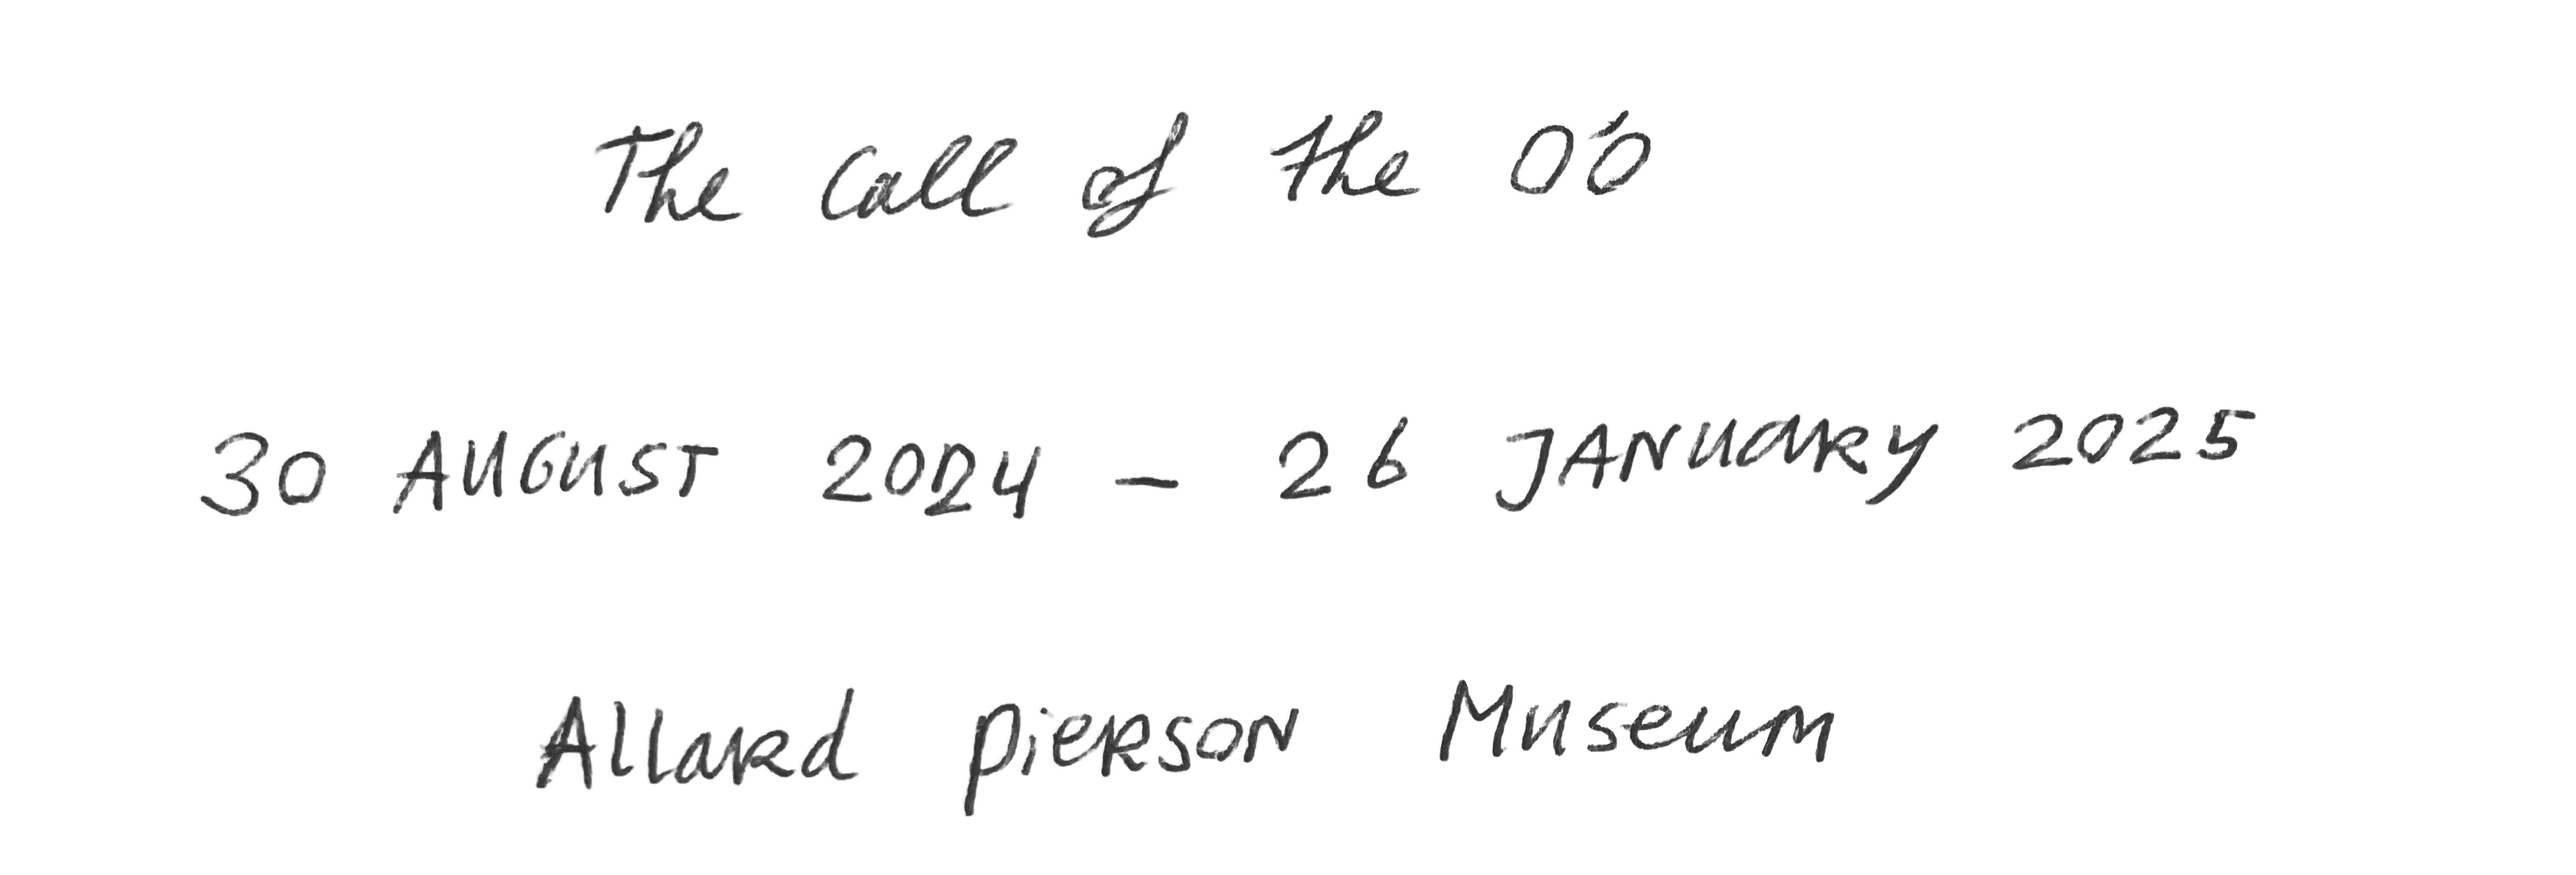 The call of the O'ō
30 AUGUST 2024 – 26 JANUARY 2025
Allard Pierson Museum